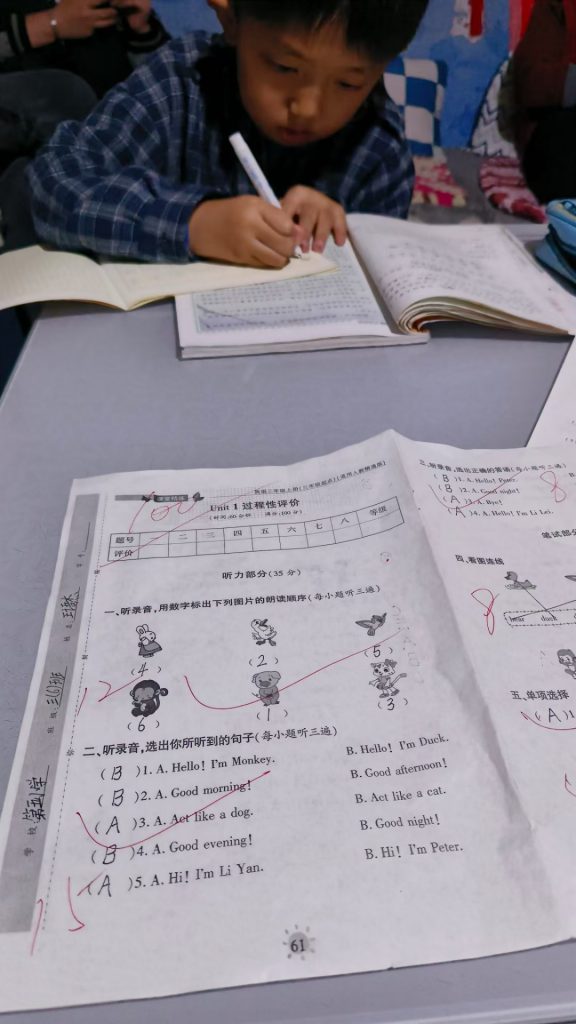 课堂精练
100
Unit 1 过程性评价
(时间:60分钟 满分:100分)
题号 一 二 三 四 五 六 七 八 等级
评价
听力部分(35分)
一、听录音,用数字标出下列图片的朗读顺序(每小题听三遍)
(4) (2) (5)
(6) (1) (3)
12
二、听录音,选出你所听到的句子(每小题听三遍)
(B)1. A. Hello! I'm Monkey. B. Hello! I'm Duck.
(B)2. A. Good morning! B. Good afternoon!
(A)3. A. Act like a dog. B. Act like a cat.
(B)4. A. Good evening! B. Good night!
(A)5. A. Hi! I'm Li Yan. B. Hi! I'm Peter.
15
61
三、听录音,选出正确的答语(每小题听三遍)
(B)1. A. Hello! Peter.
(B)2. A. Good night!
(A)3. A. Bye!
(A)4. A. Hello! I'm Li Lei.
8
笔试部分
四、看图连线
8
bear duck
五、单项选择
(A)1.
学校
班级 三(6)班
姓名
学号